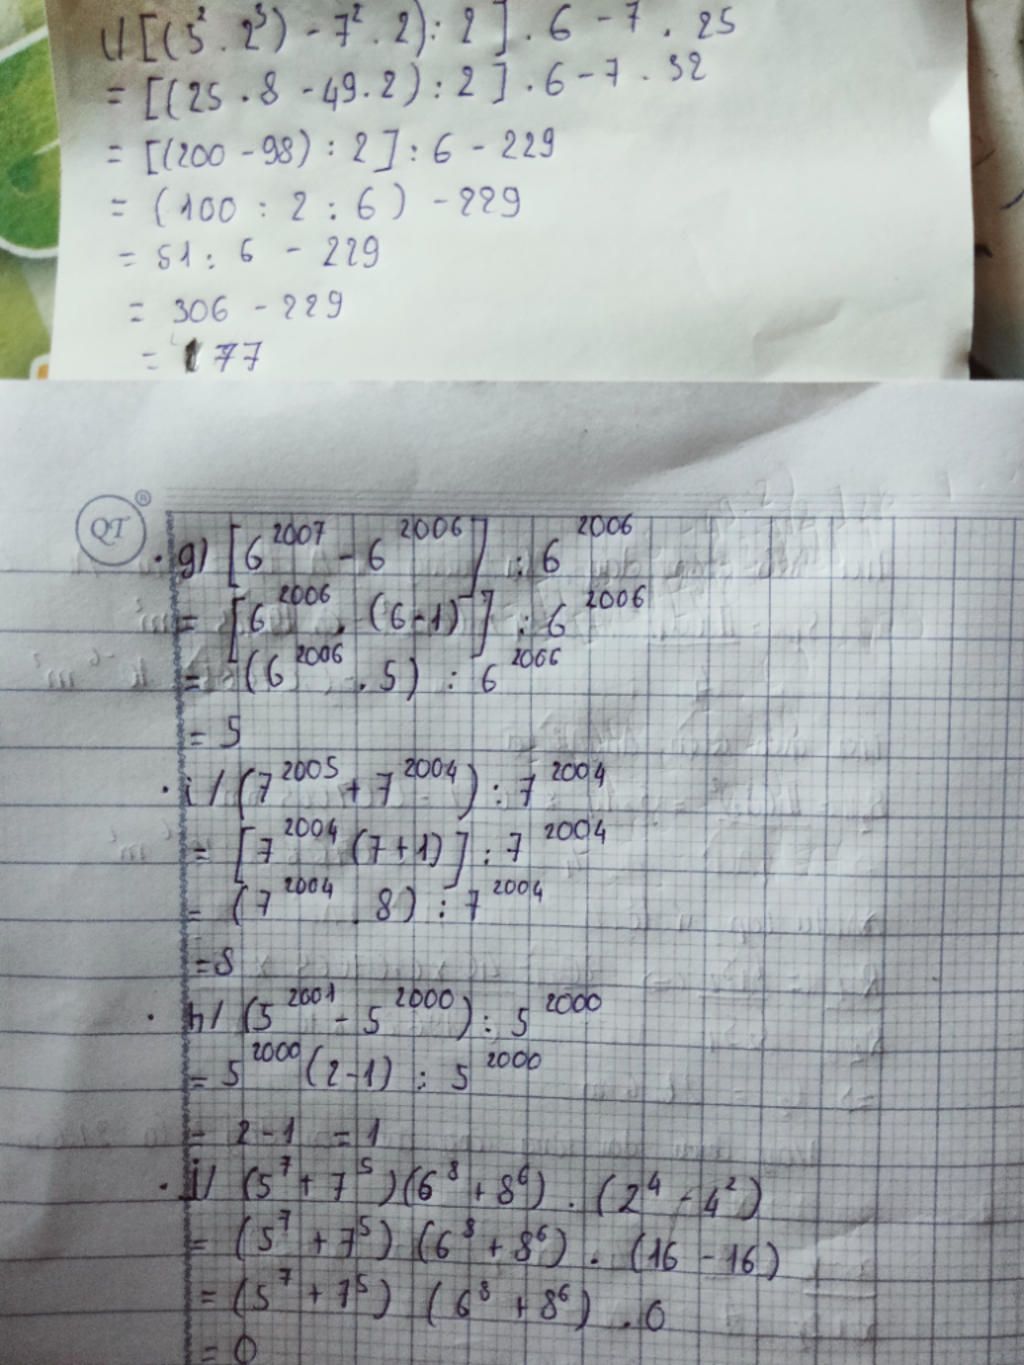 l/ [(5² . 2³) - 7² . 2) : 2] . 6 - 7 . 25
= [(25 . 8 - 49 . 2) : 2] . 6 - 7 . 32
= [(200 - 98) : 2] : 6 - 229
= (100 : 2 : 6) - 229
= 51 : 6 - 229
= 306 - 229
= 77
QT ®
g) [6²⁰⁰⁷ - 6²⁰⁰⁶] : 6²⁰⁰⁶
= [6²⁰⁰⁶ . (6-1)] : 6²⁰⁰⁶
= (6²⁰⁰⁶ . 5) : 6²⁰⁰⁶
= 5
i/ (7²⁰⁰⁵ + 7²⁰⁰⁴) : 7²⁰⁰⁴
= [7²⁰⁰⁴ (7+1)] : 7²⁰⁰⁴
= (7²⁰⁰⁴ . 8) : 7²⁰⁰⁴
= 8
h/ (5²⁰⁰¹ - 5²⁰⁰⁰) : 5²⁰⁰⁰
= 5²⁰⁰⁰ (2-1) : 5²⁰⁰⁰
= 2-1 = 1
j/ (5⁷ + 7⁵)(6⁸ + 8⁶) . (2⁴ - 4²)
= (5⁷ + 7⁵) (6⁸ + 8⁶) . (16 - 16)
= (5⁷ + 7⁵) (6⁸ + 8⁶) . 0
= 0